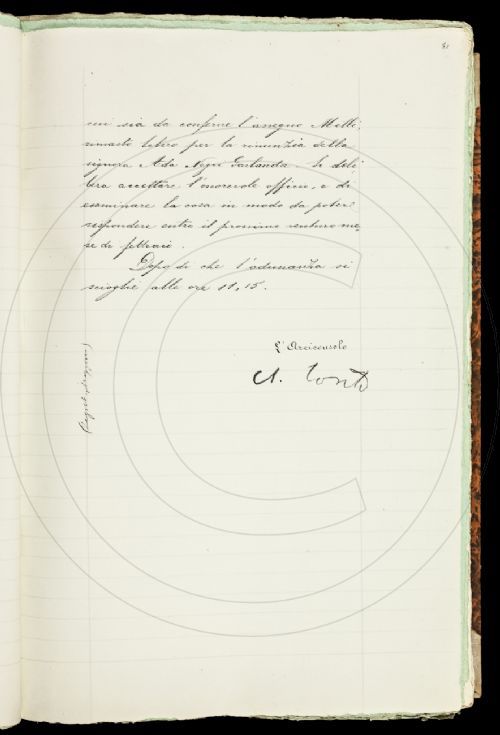 81
cui sia da conferire l'assegno Milli,
rimasto libero per la rinunzia della
signora Ada Negri Garlanda. Si deli-
bera accettare l'onorevole officio, e di
esaminare la cosa in modo da poter
rispondere entro il prossimo venturo me-
se di febbraio.
Dopo di che l'adunanza si
scioglie alle ore 11,15.
L'Arciconsolo
A. Conti